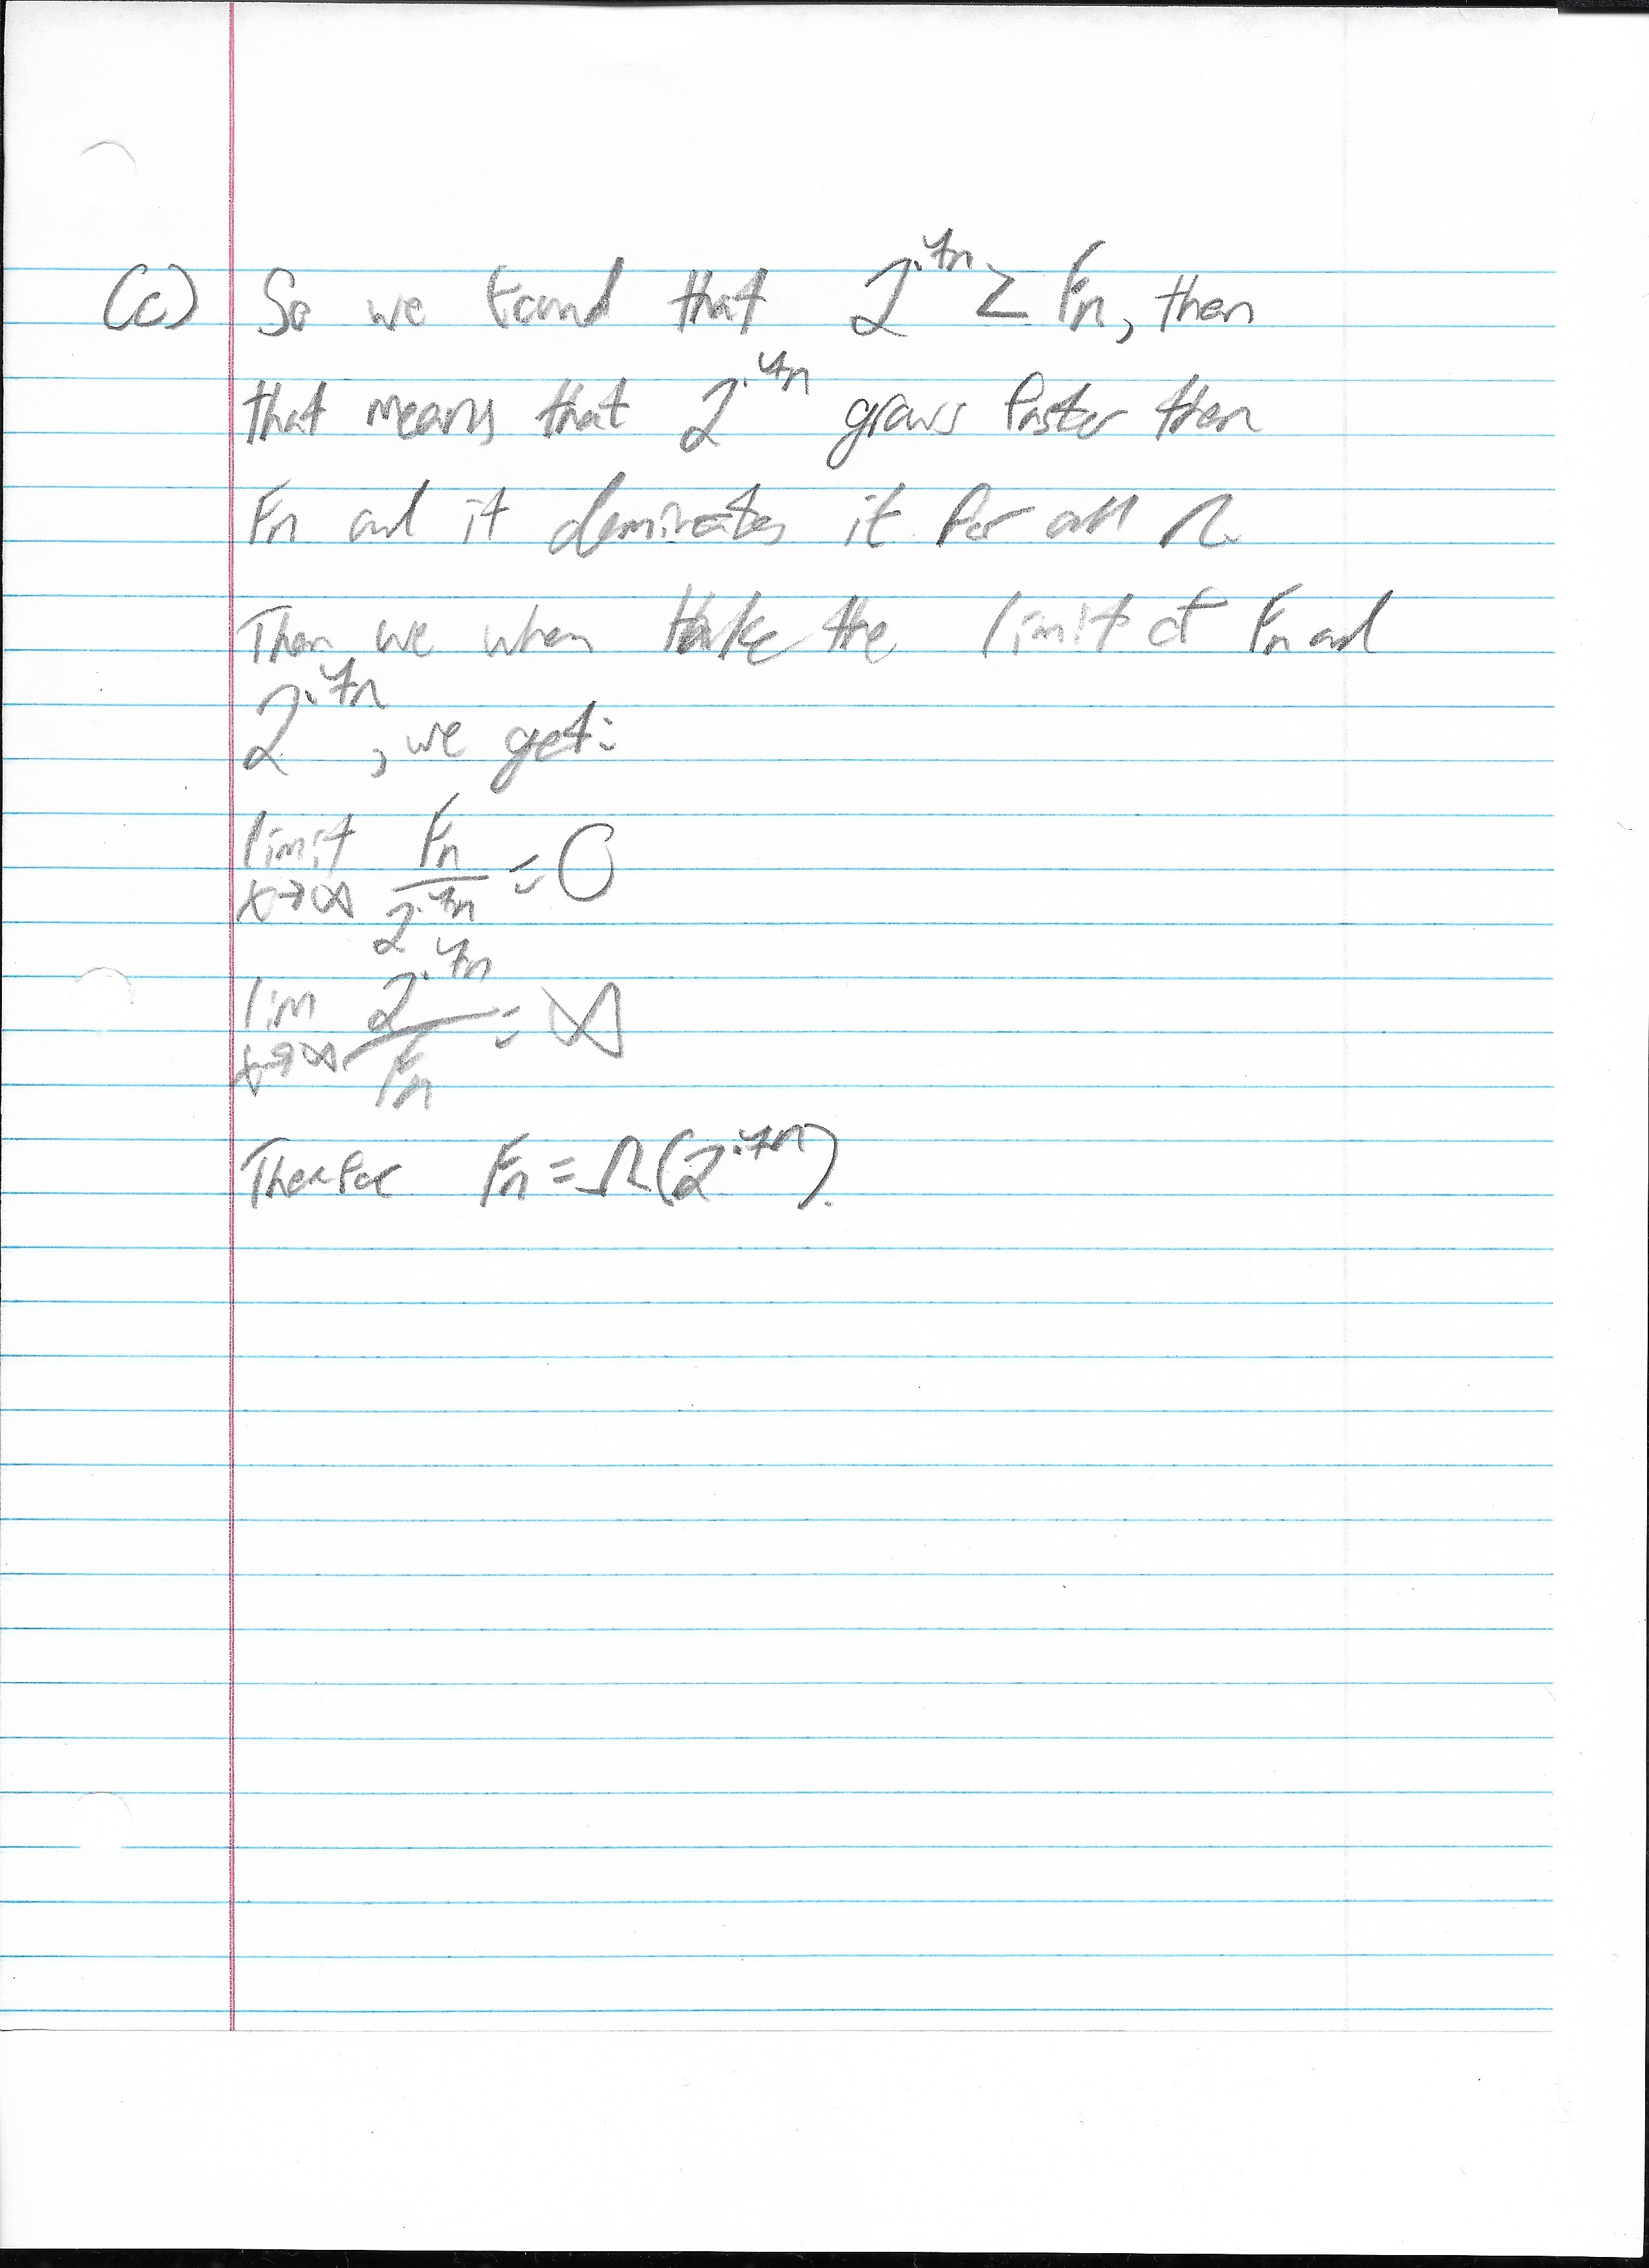 (c) So we found that 2^.7n ≥ Fn, then
that means that 2^.7n grows faster then
Fn and it dominates it for all n.
Then we when take the limit of Fn and
2^.7n, we get:
limit x→∞ Fn / 2^.7n = 0
lim x→∞ 2^.7n / Fn = ∞
Fn = Ω(2^.7n).